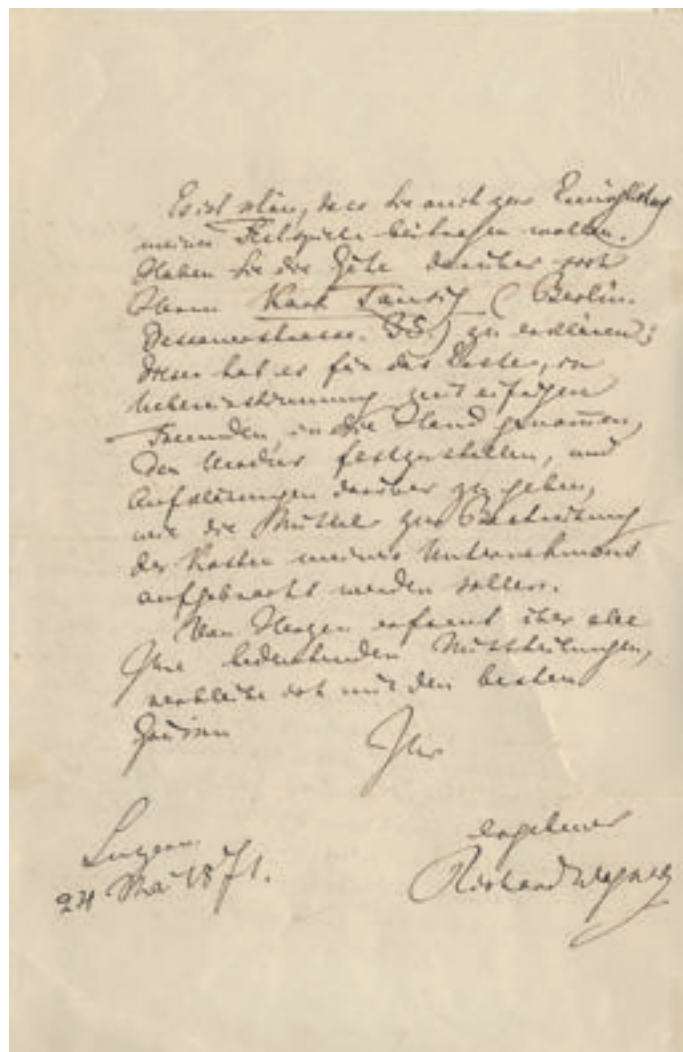 Es ist schön, dass Sie auch zur Ermöglichung
meiner Festspiele beitragen wollen.
Haben Sie die Güte darüber sich
Herrn Karl Tausig (Berlin.
Dessauerstrasse. 35.) zu erklären;
dieser hat es für das Beste, in
Uebereinstimmung mit einigen
Freunden, in die Hand genommen,
den Modus festzustellen, und
Aufklärungen darüber zu geben,
wie die Mittel zur Bestreitung
der Kosten meines Unternehmens
aufgebracht werden sollen.
Von Herzen erfreut über alle
Ihre bedeutenden Mittheilungen,
verbleibe ich mit den besten
Grüssen
Ihr
ergebener
Richard Wagner
Luzern,
24 Mai 1871.